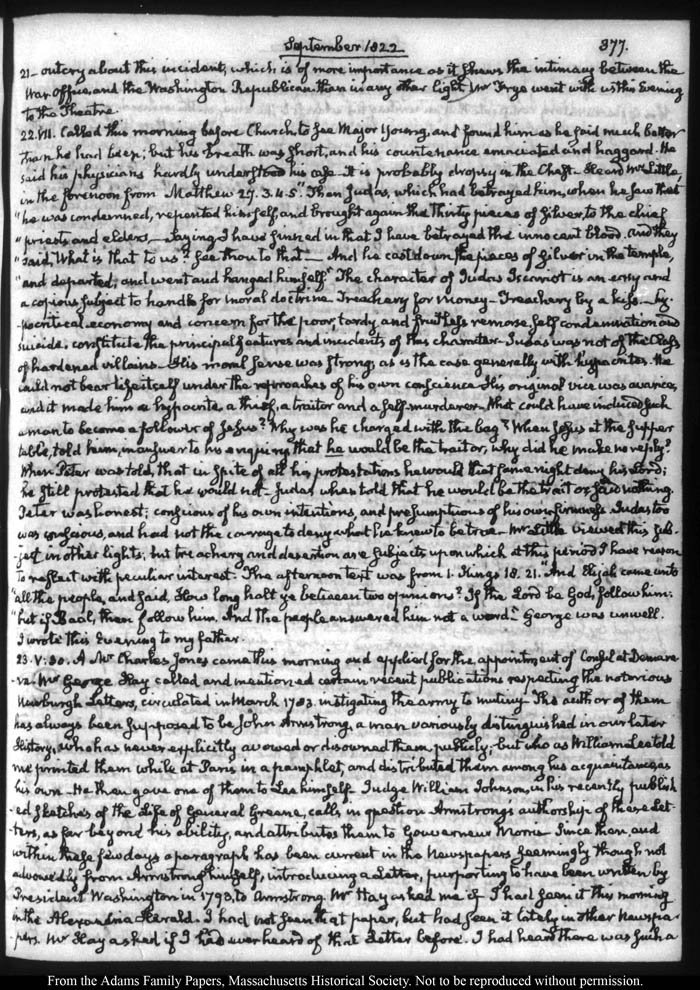 September 1822
377.
21_ outcry about this incident, which is of more importance as it shews the intimacy between the
War Office, and the Washington Republican than in any other light. Mr Frye went with us this Evening
to the Theatre.
22. VII. Called this morning before Church, to see Major Young, and found him as he said much better
than he had been; but his breath was short, and his countenance emaciated and haggard. He
said his physicians hardly understood his case. It is probably dropsy in the Chest. Heard Mr Little,
in the forenoon from Matthew 27. 3. 4. 5. "Then Judas, which had betrayed him, when he saw that
"he was condemned, repented himself, and brought again the thirty pieces of silver, to the chief
"priests and elders,_ Saying, I have sinned in that I have betrayed the innocent blood. and they
"said, What is that to us? see thou to that_ And he cast down the pieces of silver in the temple,
"and departed, and went and hanged himself." The character of Judas Iscariot is an easy and
a copious subject to handle for moral doctrine. Treachery for money_ Treachery by a kiss._ hy-
-pocritical economy and concern for the poor, tardy and fruitless remorse, self condemnation and
suicide, constitute the principal features and incidents of this character_ Judas was not of the Class
of hardened villains_ His moral sense was strong, as is the case generally with hypocrites. He
could not bear life itself under the reproaches of his own conscience. His original vice was avarice,
and it made him a hypocrite, a thief, a traitor and a self-murderer_ What could have induced such
a man to become a follower of Jesus? Why was he charged with the bag? When Jesus at the supper
table, told him, in answer to his enquiry that he would be the traitor, why did he make no reply?
When Peter was told, that in spite of all his protestations he would that same night deny his Lord;
he still protested that he would not_ Judas when told that he would be the traitor said nothing.
Peter was honest; conscious of his own intentions, and presumptuous of his own firmness. Judas too
was conscious, and had not the courage to deny what he knew to be true_ Mr Little viewed this sub-
-ject in other lights; but treachery and desertion are subjects upon which at this period I have reason
to reflect with peculiar interest. The afternoon text was from 1. Kings 18. 21. "And Elijah came unto
"all the people, and said, How long halt ye between two opinions? If the Lord be God, follow him:
"but if Baal, then follow him. And the people answered him not a word." George was unwell.
I wrote this Evening to my father.
23. V:30. A Mr Charles Jones came this morning and applied for the appointment of Consul at Demara-
-ra. Mr George Hay called and mentioned certain recent publications respecting the notorious
Newburgh Letters, circulated in March 1783. instigating the army to mutiny. The author of them
has always been supposed to be John Armstrong, a man variously distinguished in our later
History, who has never explicitly avowed or disowned them publicly; but who as William Lee told
me printed them while at Paris in a pamphlet, and distributed them among his acquaintance, as
his own. He then gave one of them to Lee himself. Judge William Johnson, in his recently publish-
-ed Sketches of the Life of General Greene, calls in question Armstrong's authorship of these Let-
-ters, as far beyond his ability, and attributes them to Gouverneur Morris. Since then, and
within these few days a paragraph has been current in the Newspapers, seemingly though not
avowedly from Armstrong himself, introducing a Letter, purporting to have been written by
President Washington in 1793, to Armstrong. Mr Hay asked me if I had seen it this morning
in the Alexandria Herald. I had not seen that paper, but had seen it lately in other Newspa-
-pers. Mr Hay asked if I had ever heard of that Letter before. I had heard there was such a
From the Adams Family Papers, Massachusetts Historical Society. Not to be reproduced without permission.